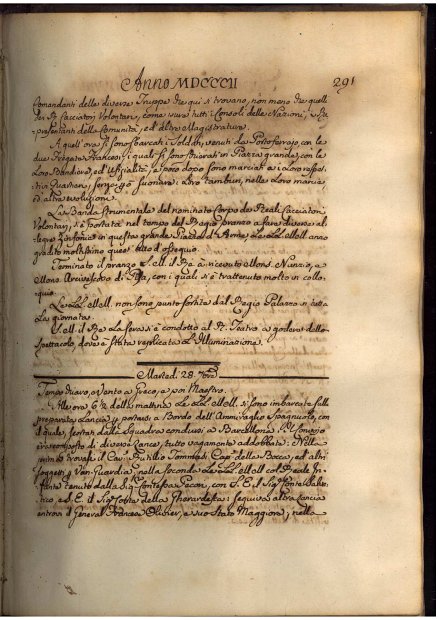 Anno MDCCCII
291
Comandanti delle diverse Truppe che qui si trovano, non meno che quelli
dei Cacciatori Volontarj, come pure tutti i Consoli delle Nazioni, i Rap-
presentanti della Comunità, ed altre Magistrature.
A quell'ora si sono sbarcati i Soldati, venuti da Portoferrajo, con le
due Fregate Francesi, i quali si sono schierati in Piazza grande, con le
loro Bandiere, ed Uffizialità, e poco dopo sono marciati ai loro respet-
tivi Quartieri, facendo suonare i loro tamburi, nella loro marcia,
ed altre evoluzioni.
La Banda strumentale del nominato Corpo de' Reali Cacciatori
Volontarj, si è portata nel tempo del Regio pranzo a fare diverse al-
legre sinfonie in questa grande Piazza d'Arme, e le LL. MM. anno
gradito moltissimo quest'atto d'ossequio.
Terminato il pranzo S. M. il Re à ricevuto Mons. Nunzio, e
Mons. Arcivescovo di Pisa, con i quali si è trattenuto molto in collo-
quio.
Le LL. MM. non sono punto sortite dal Regio Palazzo in tutta
la giornata.
S. M. il Re la sera si è condotto al R. Teatro a godere dello
spettacolo, dove è stata replicata l'Illuminazione.
Marted. 28. 7bre
Tempo vario, e Vento a Greco, e poi Maestro.
All'ore 6 1/2 della mattina Le LL. MM. si sono imbarcate sulle
preparate Lancie, e portatesi a Bordo dell'Ammiraglio Spagnuolo, con
il quale, scortati dalla Squadra condursi a Barcellona. Il Convoglio
era composto di diverse Lance, tutte vagamente addobbate: Nella
prima trovasi il Cav. Attilio Tommasi Cap. della Bocca, ed altri
soggetti di Van-guardia; nella seconda Le LL. MM. col Reale In-
fante tenuto dalla Sig. Contessa Pecori, con S. E. il Sig. Conte Salva-
tico, e S. E. il Sig. Conte della Gherardesca; seguiva altra Lancia
entrovi il General Francese Olivier, e suo Stato Maggiore; nella